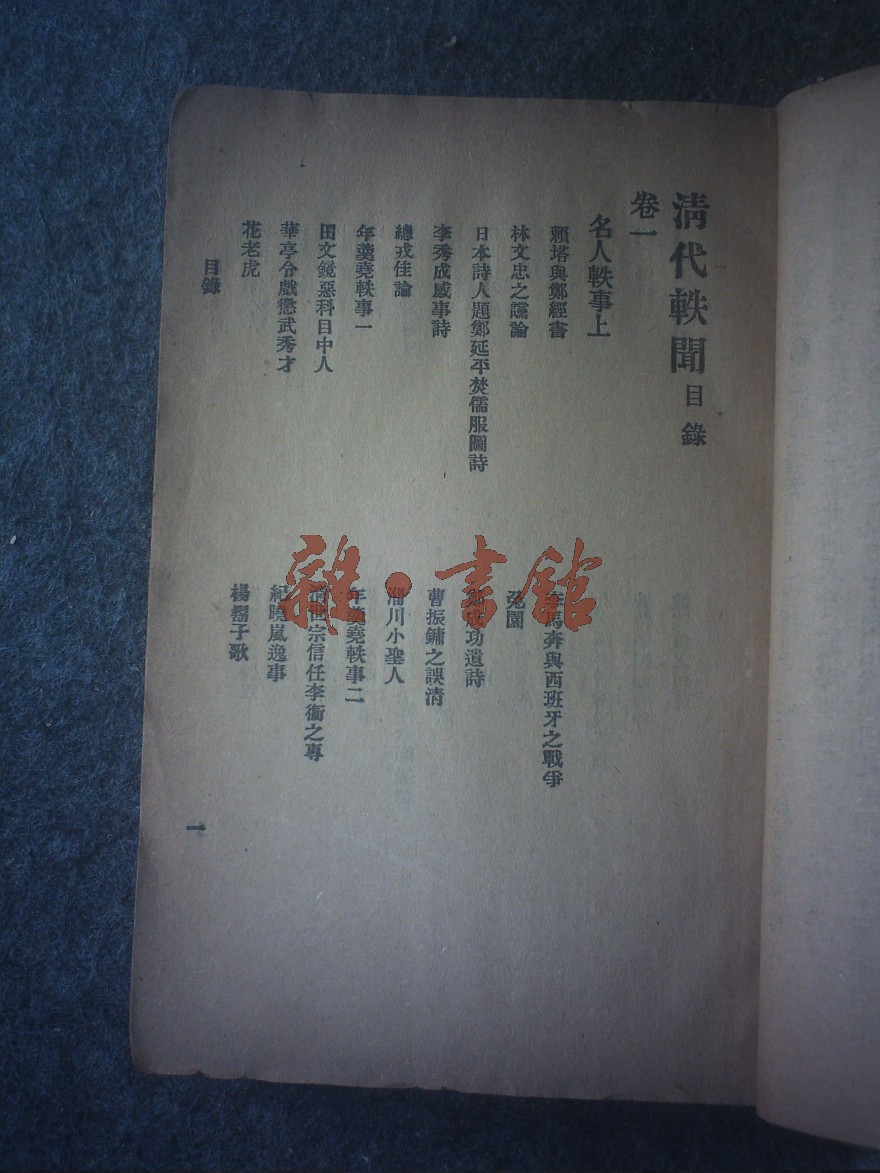 清代軼聞目錄
卷一
名人軼事上
賴塔與鄭經書
李馬奔與西班牙之戰爭
林文忠之讜論
兔園
日本詩人題鄭延平焚儒服圖詩
鄭成功遺詩
李秀成感事詩
曹振鏞之誤清
總戎佳論
淄川小聖人
年羹堯軼事一
年羹堯軼事二
田文鏡惡科目中人
清世宗信任李衞之專
華亭令戲懲武秀才
紀曉嵐逸事
花老虎
楊鬍子歌
目錄
一
雜·書館